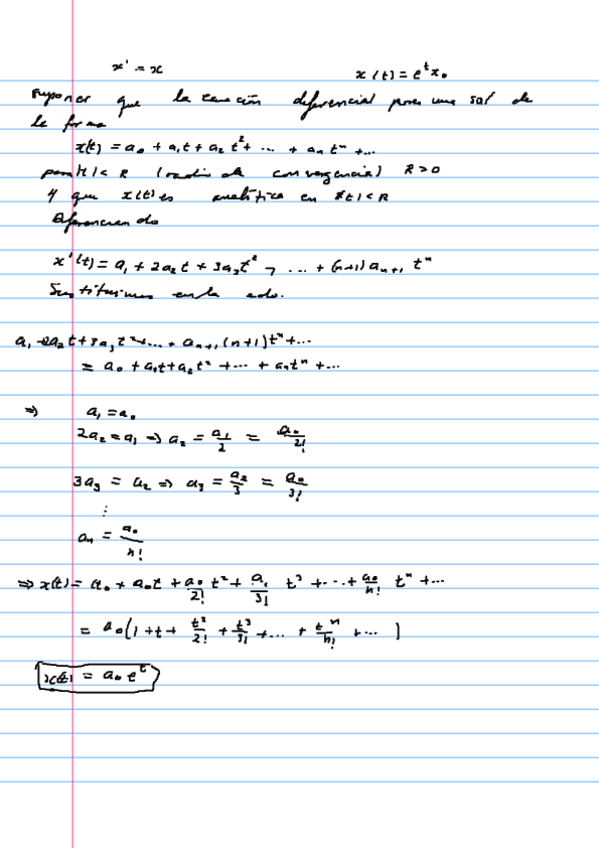 x' = x x(t) = e^t x_0
Suponer que la ecuación diferencial posee una sol de
la forma
x(t) = a_0 + a_1 t + a_2 t^2 + ... + a_n t^n + ...
para |t| < R (radio de convergencia) R > 0
y que x(t) es analítica en |t| < R
Diferenciando
x'(t) = a_1 + 2a_2 t + 3a_3 t^2 + ... + (n+1) a_{n+1} t^n
Sustituimos en la edo.
a_1 + 2a_2 t + 3a_3 t^2 + ... + a_{n+1} (n+1) t^n + ...
= a_0 + a_1 t + a_2 t^2 + ... + a_n t^n + ...
⇒ a_1 = a_0
2a_2 = a_1 ⇒ a_2 = a_1/2 = a_0/2!
3a_3 = a_2 ⇒ a_3 = a_2/3 = a_0/3!
⋮
a_n = a_0/n!
⇒ x(t) = a_0 + a_0 t + a_0/2! t^2 + a_0/3! t^3 + ... + a_0/n! t^n + ...
= a_0 (1 + t + t^2/2! + t^3/3! + ... + t^n/n! + ... )
x(t) = a_0 e^t